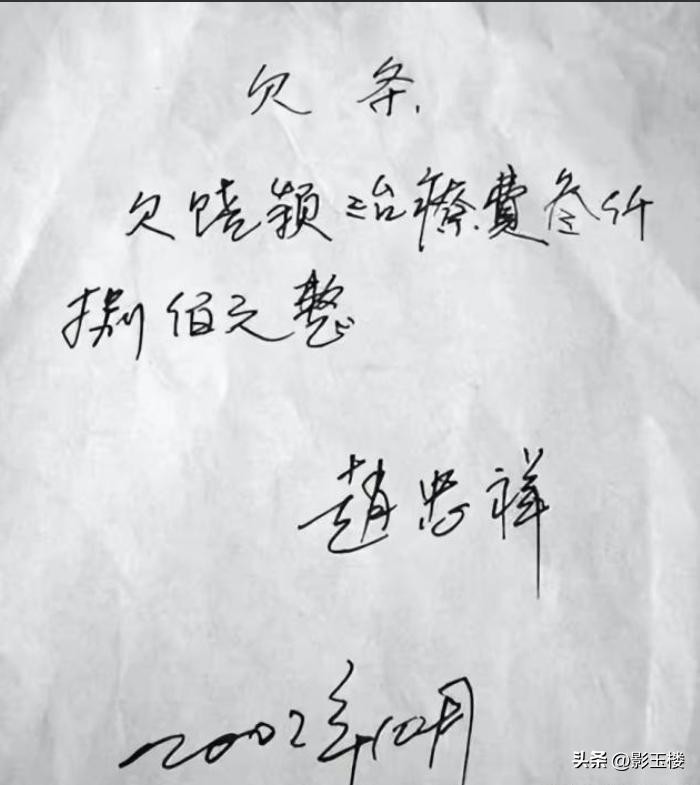 欠条
欠饶颖治療費叁仟
捌佰元整
趙忠祥
2002年12月
头条 @影玉楼